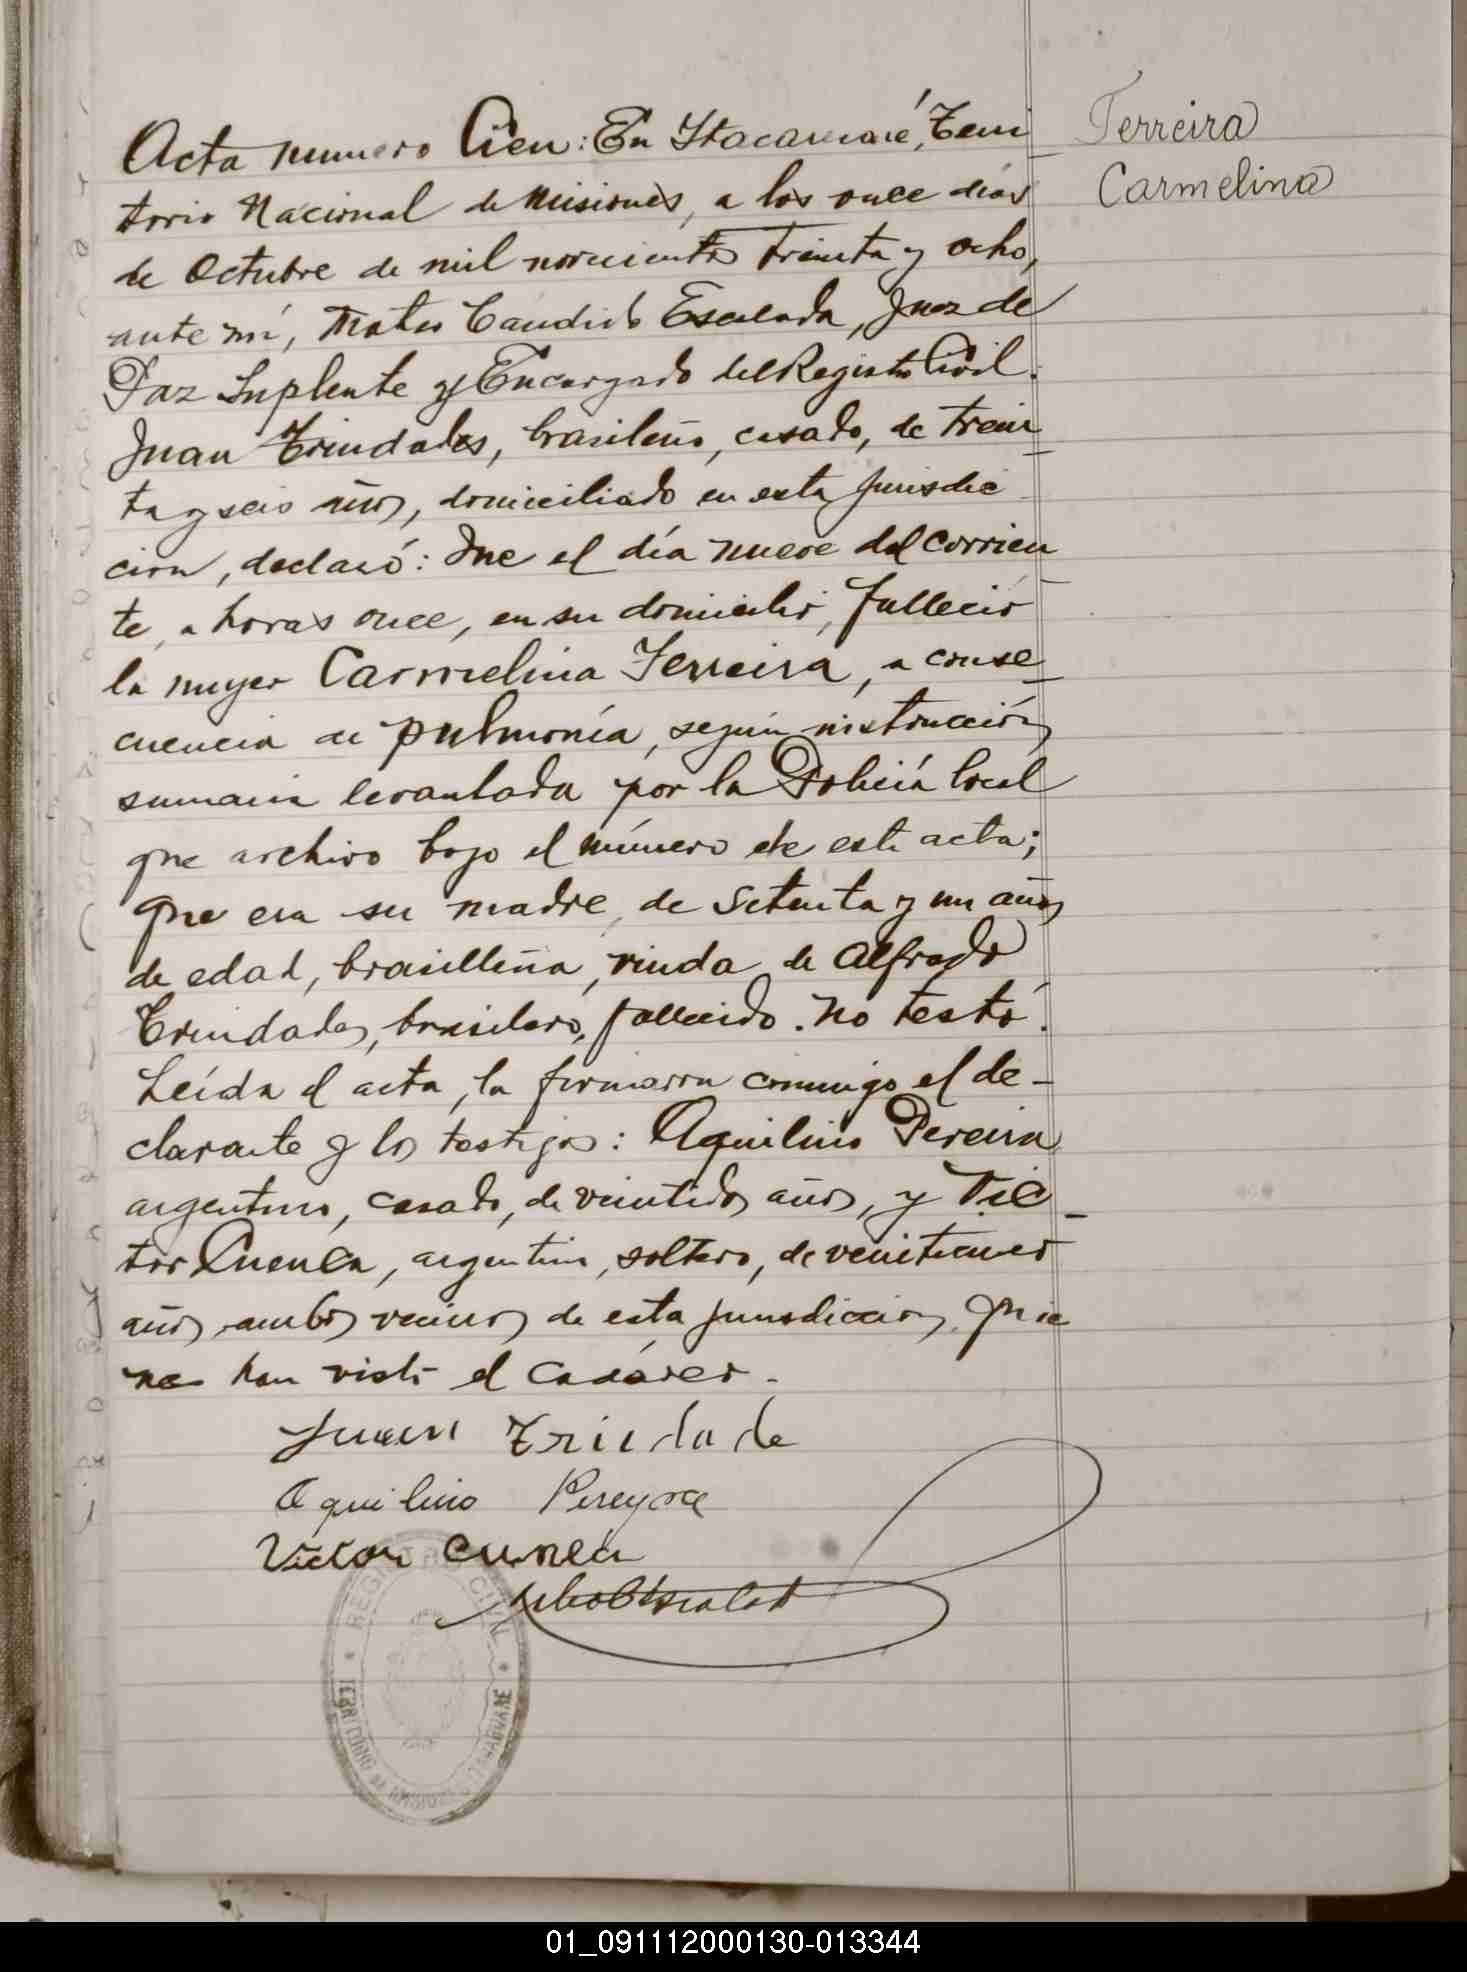 Acta numero Cien: En Itacaruaré, Terri
torio Nacional de Misiones, a los once días
de Octubre de mil novecientos treinta y ocho,
ante mí, Mateo Cándido Escalada, Juez de
Paz Suplente y Encargado del Registro Civil.
Juan Trindades, brasileño, casado, de trein
ta y seis años, domiciliado en esta jurisdic
cion, declaró: Que el día nueve del corrien
te, a horas once, en su domicilio, falleció
la mujer Carmelina Ferreira, a conse
cuencia de pulmonía, según instrucción
sumaria levantada por la Policía local
que archivo bajo el número de esta acta;
que era su madre, de setenta y un años
de edad, brasilleña, viuda de Alfredo
Trindades, brasilero, fallecido. No testó.
Leída el acta, la firmaron conmigo el de-
clarante y los testigos: Aquilino Pereira
argentino, casado, de veintidos años, y Víc
tor Cuenca, argentino, soltero, de veintinueve
años, ambos vecinos de esta jurisdiccion, quie
nes han visto el cadáver.
Juan Trindade
Aquilino Pereyra
Victor Cunea
Ferreira
Carmelina
REGISTRO CIVIL
TERRITORIO DE MISIONES ITACARUARE
01_091112000130-013344